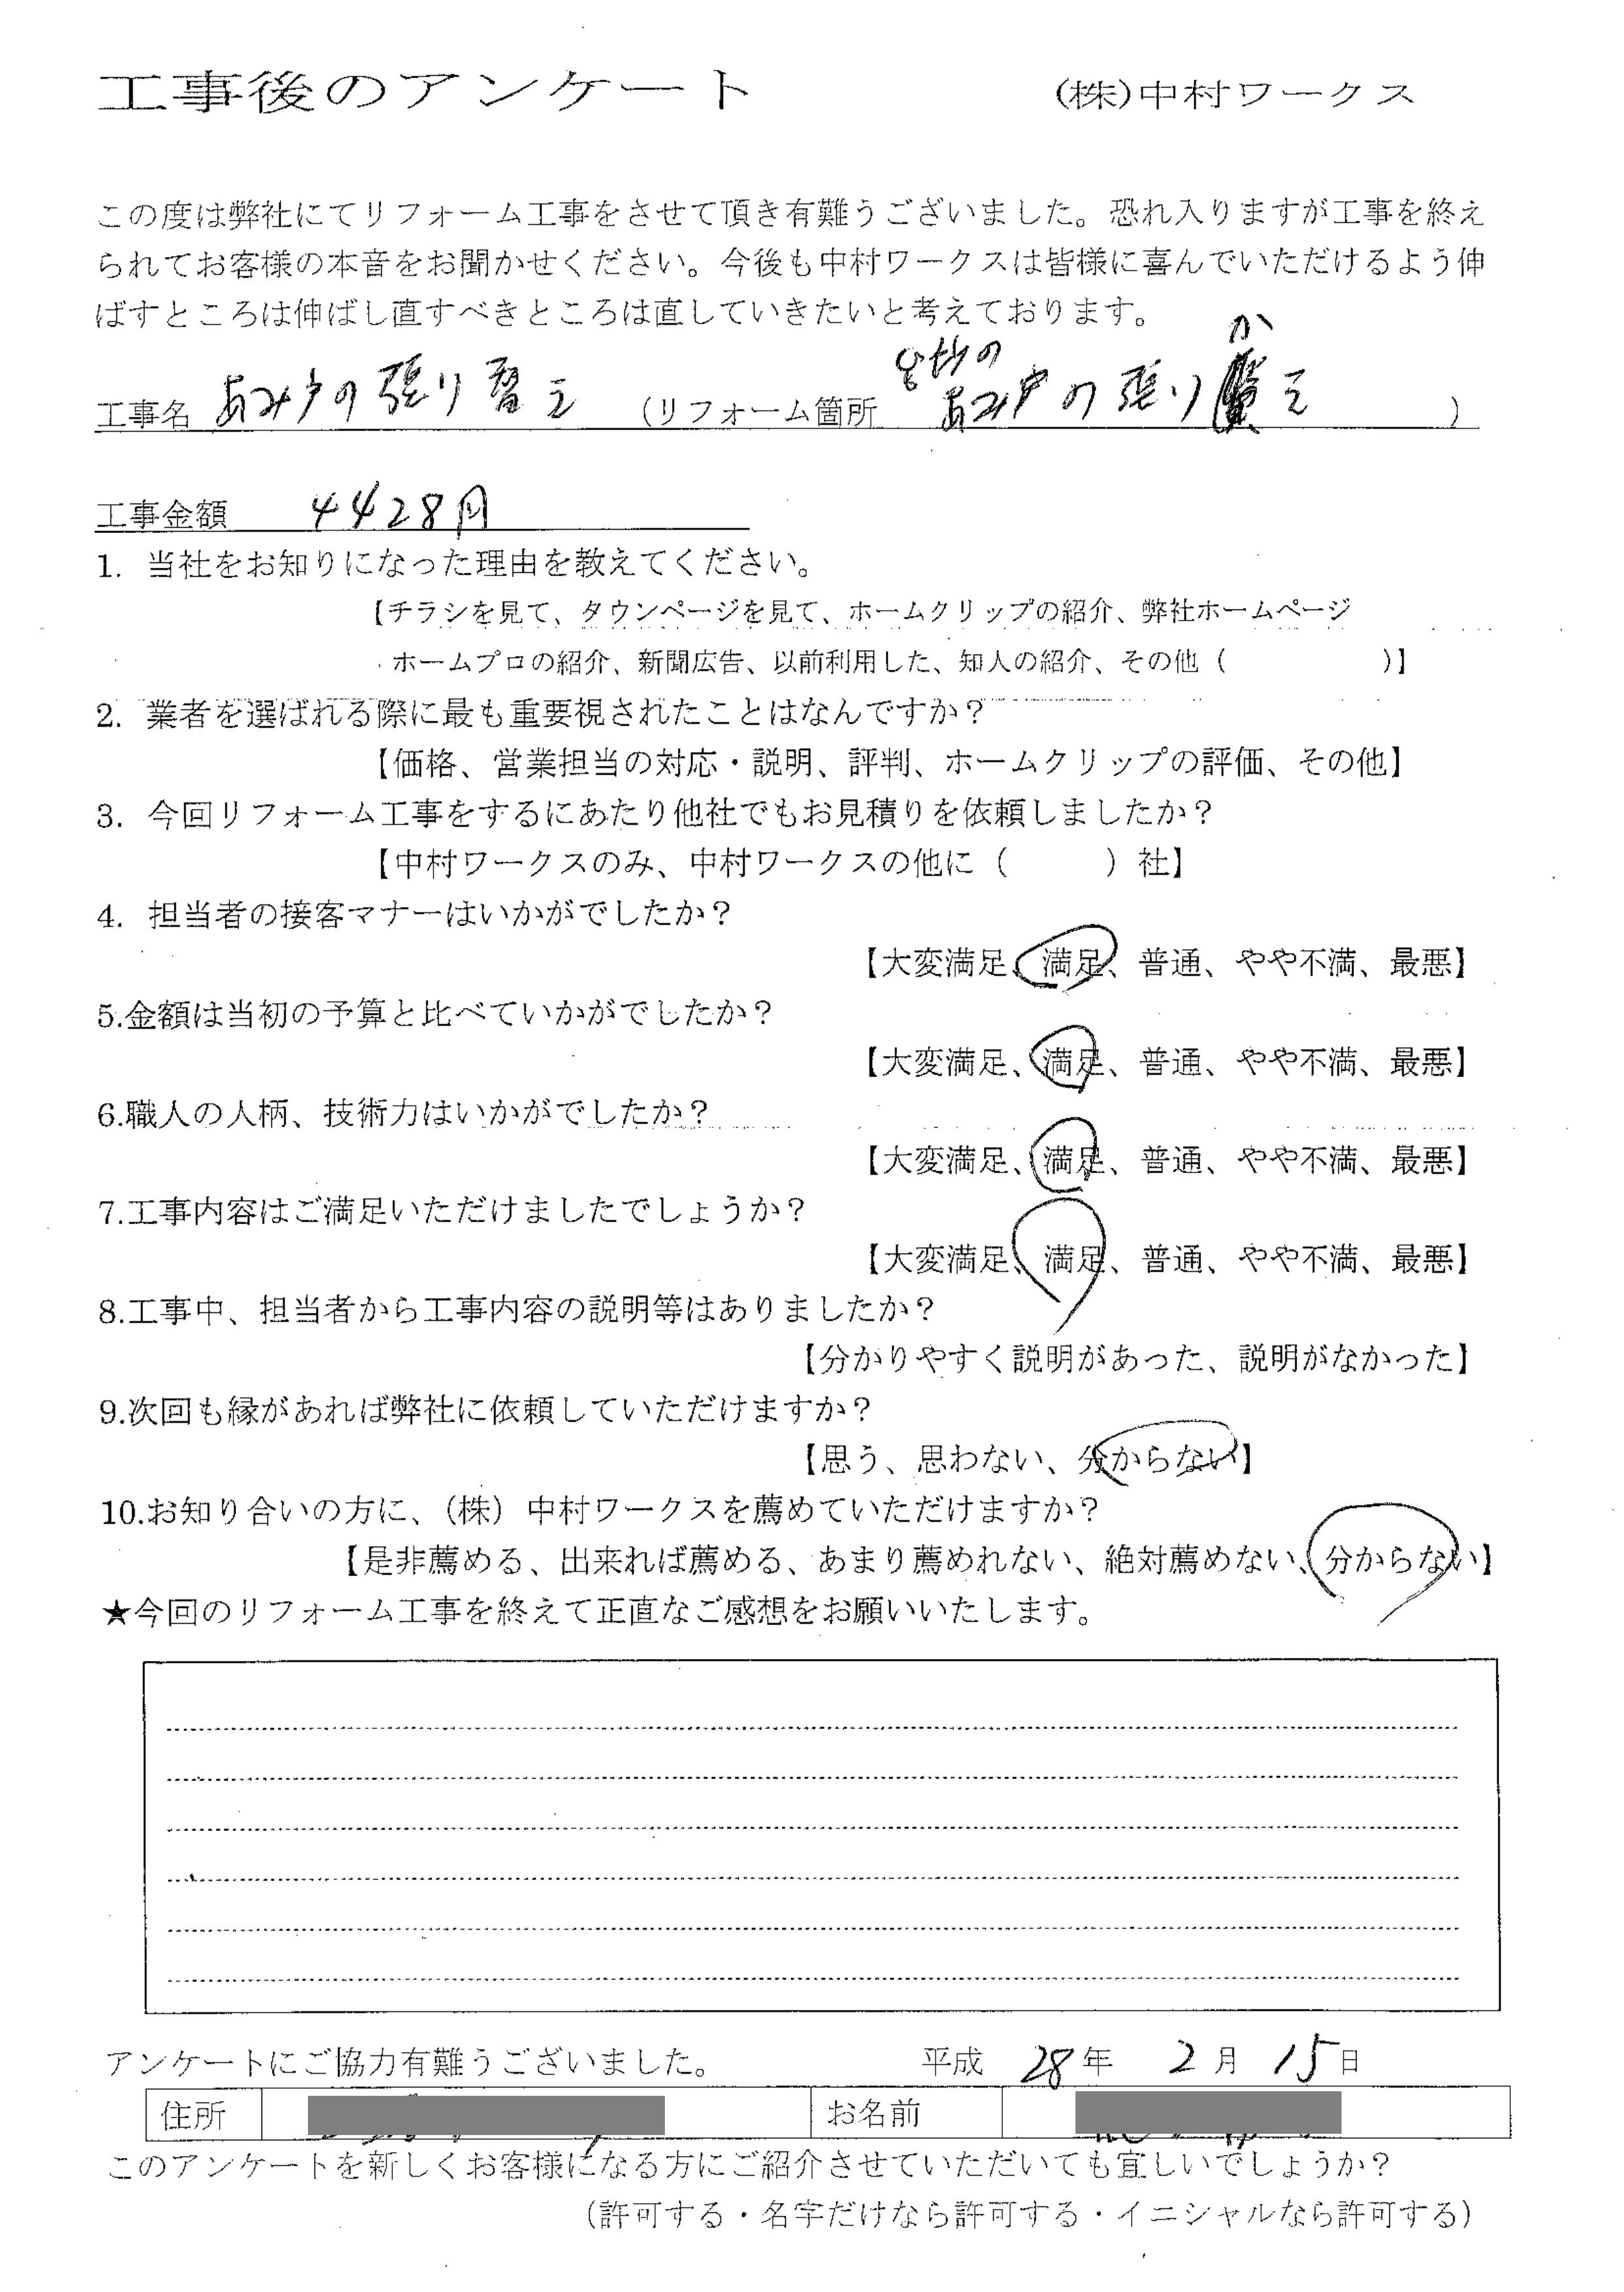 工事後のアンケート (株)中村ワークス
この度は弊社にてリフォーム工事をさせて頂き有難うございました。恐れ入りますが工事を終え
られてお客様の本音をお聞かせください。今後も中村ワークスは皆様に喜んでいただけるよう伸
ばすところは伸ばし直すべきところは直していきたいと考えております。
工事名 あみ戸の張り替え (リフォーム箇所 あみ戸の張りかえ )
工事金額 4428円
1. 当社をお知りになった理由を教えてください。
【チラシを見て、タウンページを見て、ホームクリップの紹介、弊社ホームページ
ホームプロの紹介、新聞広告、以前利用した、知人の紹介、その他（ )】
2. 業者を選ばれる際に最も重要視されたことはなんですか？
【価格、営業担当の対応・説明、評判、ホームクリップの評価、その他】
3. 今回リフォーム工事をするにあたり他社でもお見積りを依頼しましたか？
【中村ワークスのみ、中村ワークスの他に（ ）社】
4. 担当者の接客マナーはいかがでしたか？
【大変満足、満足、普通、やや不満、最悪】
5.金額は当初の予算と比べていかがでしたか？
【大変満足、満足、普通、やや不満、最悪】
6.職人の人柄、技術力はいかがでしたか？
【大変満足、満足、普通、やや不満、最悪】
7.工事内容はご満足いただけましたでしょうか？
【大変満足、満足、普通、やや不満、最悪】
8.工事中、担当者から工事内容の説明等はありましたか？
【分かりやすく説明があった、説明がなかった】
9.次回も縁があれば弊社に依頼していただけますか？
【思う、思わない、分からない】
10.お知り合いの方に、（株）中村ワークスを薦めていただけますか？
【是非薦める、出来れば薦める、あまり薦めれない、絶対薦めない、分からない】
★今回のリフォーム工事を終えて正直なご感想をお願いいたします。
アンケートにご協力有難うございました。 平成 28年 2月 15日
住所 お名前
このアンケートを新しくお客様になる方にご紹介させていただいても宜しいでしょうか？
（許可する・名字だけなら許可する・イニシャルなら許可する）